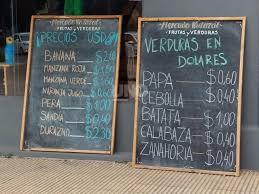 Mercado Natural
FRUTAS y VERDURAS
¡PRECIOS USD$!
BANANA $2,30
MANZANA ROJA $1,50
MANZANA VERDE $
NARANJA JUGO $0,60
PERA $1,00
SANDIA $0,40
DURAZNO $2,30
Mercado Natural
FRUTAS y VERDURAS
VERDURAS EN
DOLARES
PAPA $0,60
CEBOLLA $0,40
BATATA $1,00
CALABAZA $0,40
ZANAHORIA $0,40